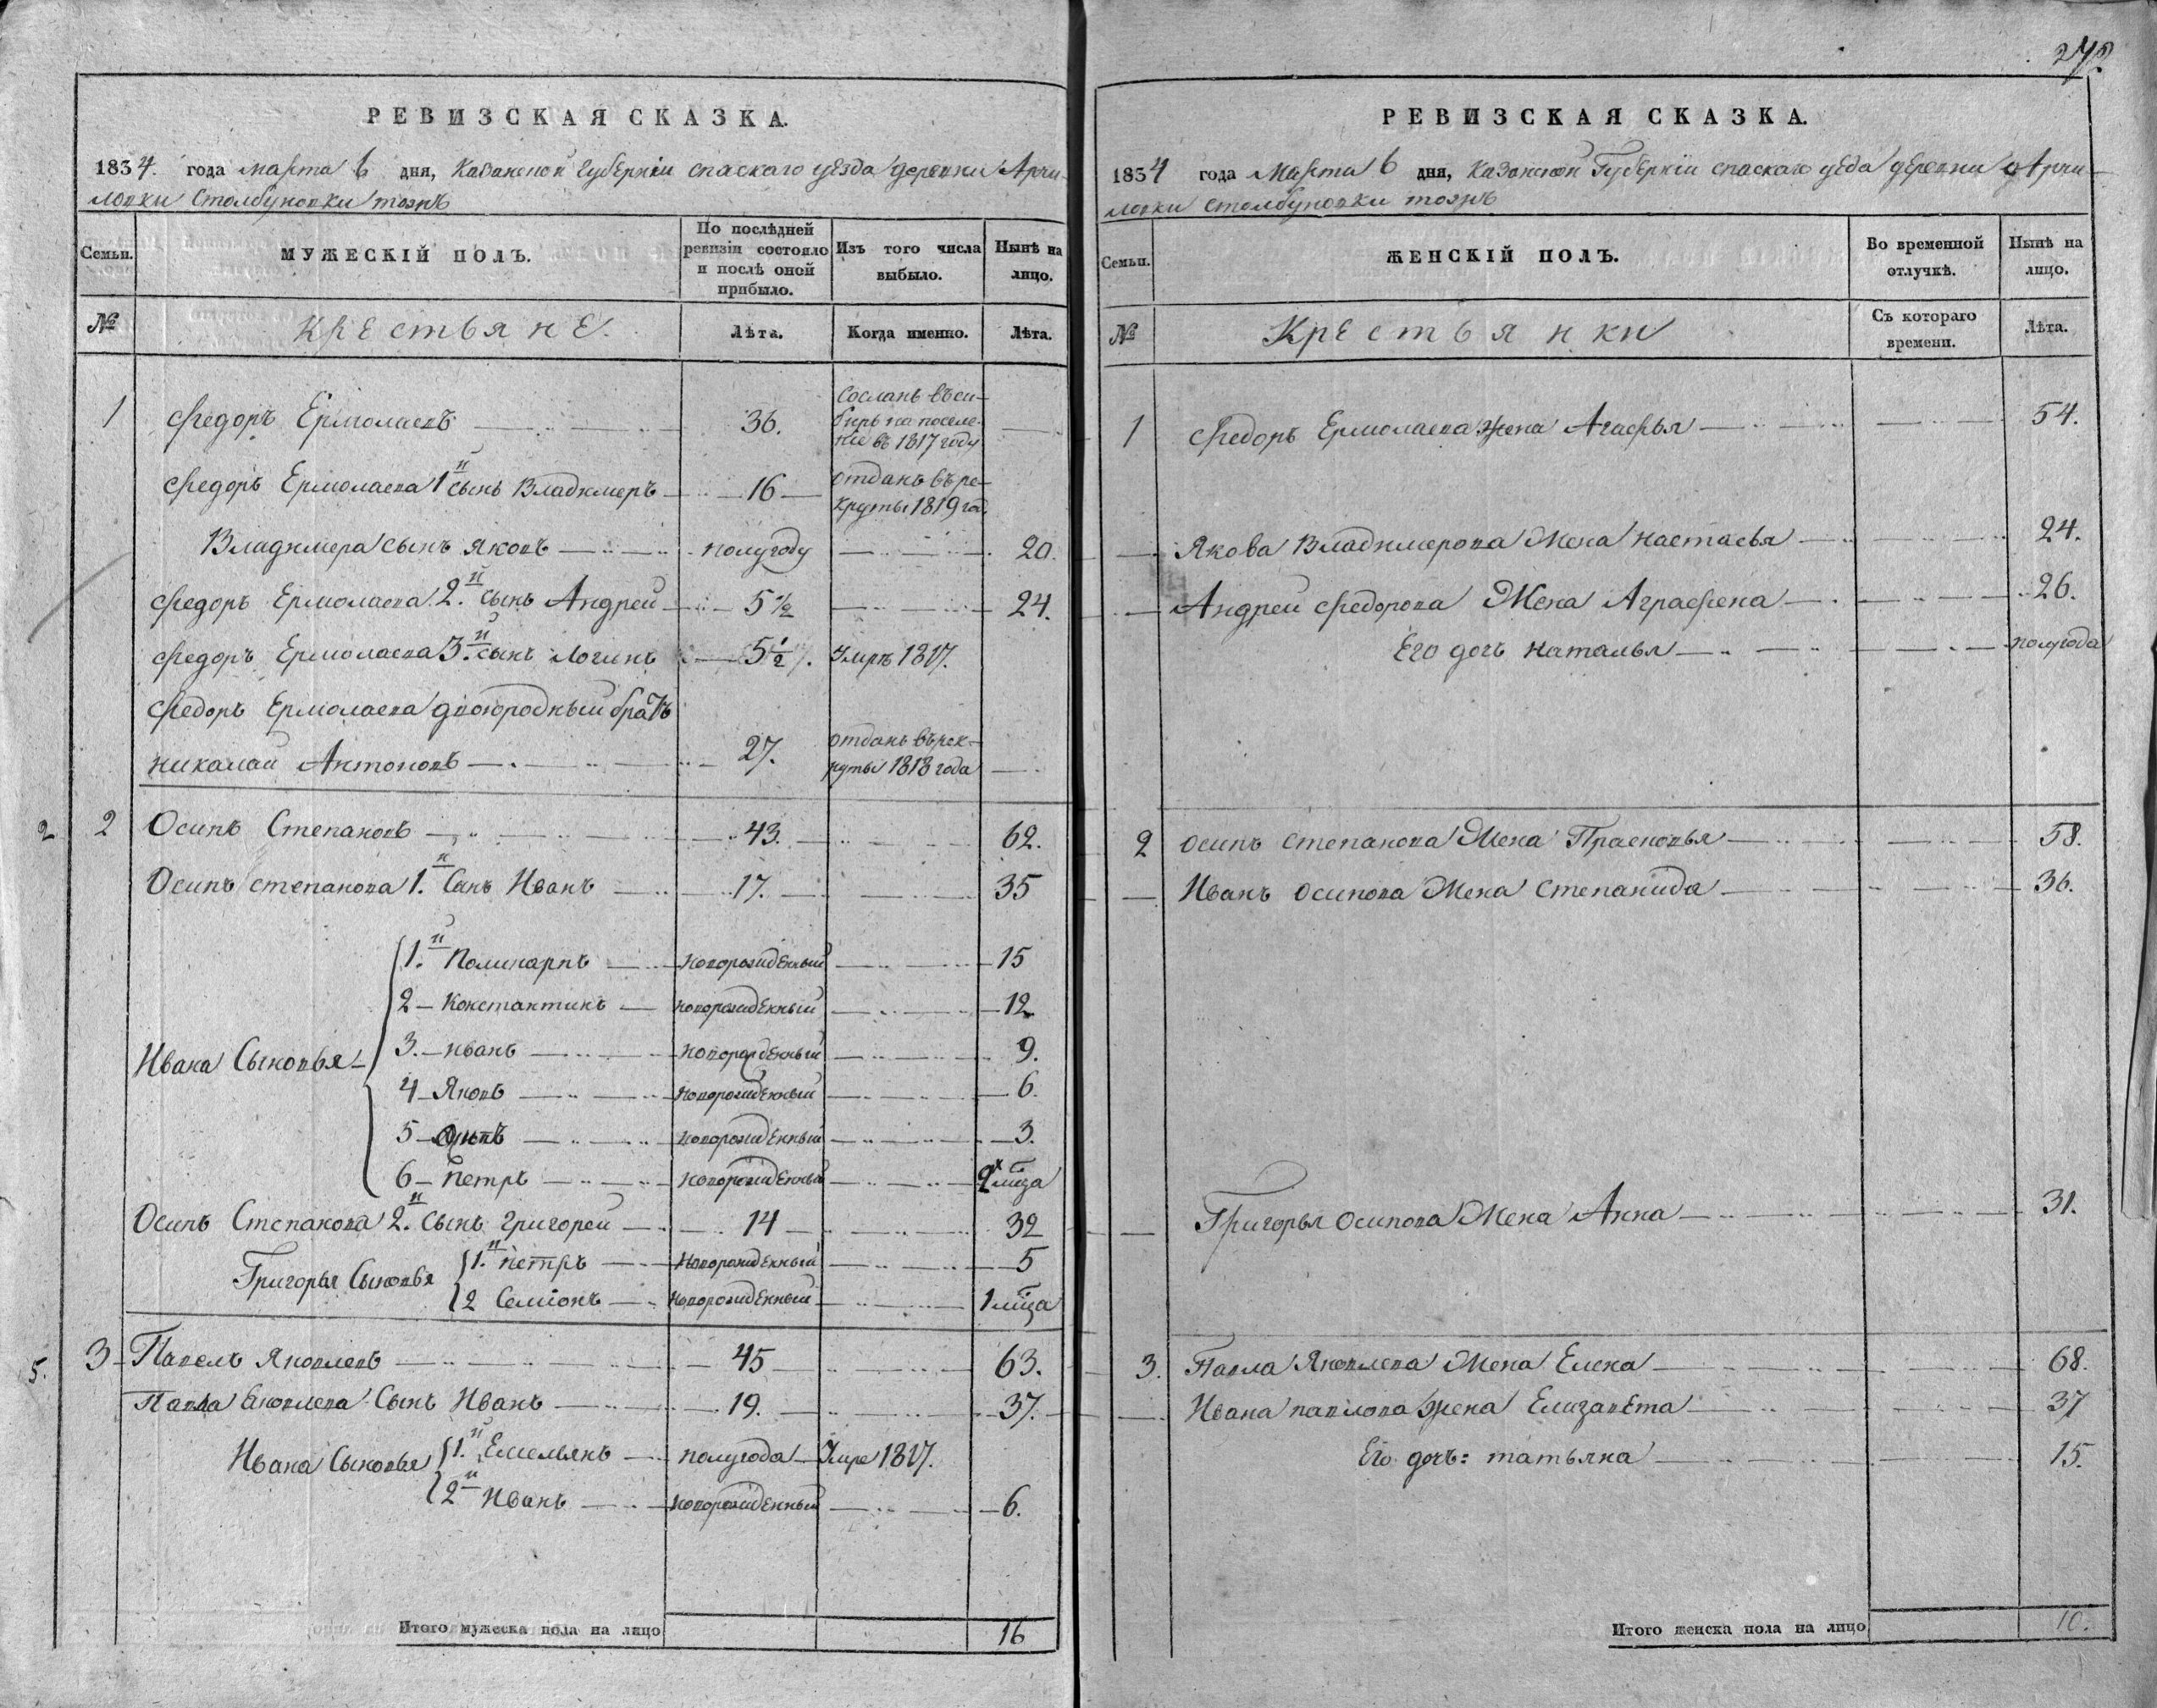 РЕВИЗСКАЯ СКАЗКА.
1834. года марта 6 дня, Казанской губерніи спаскаго уезда деревни Арчи-
ловки Столбуновки тожъ
Семьи.
МУЖЕСКІЙ ПОЛЪ.
По послѣдней ревизіи состояло и послѣ оной прибыло.
Изъ того числа выбыло.
Нынѣ на лицо.
№
крестьяне.
Лѣта.
Когда именно.
Лѣта.
1 Федоръ Ермолаевъ 36. Сосланъ въ си-
биръ на поселе-
ніе въ 1817 году
Федоръ Ермолаева 1й сынъ Владимеръ 16 отданъ въ ре-
круты 1819 год.
Владимера сынъ яковъ полугоду 20.
Федоръ Ермолаева 2.й сынъ Андрей 5 ½ 24.
Федоръ Ермолаева 3.й сынъ Логинъ 5 ½ Умръ 1817.
Федоръ Ермолаева двоюродный братъ
никалай Антоновъ 27. отданъ въ рек-
руты 1818 года
2 2 Осипъ Степановъ 43. 62.
Осипъ степанова 1. Сынъ Иванъ 17. 35
Ивана Сыновья
1.й Поликарпъ новорожденный 15
2 Константинъ новорожденный 12
3. иванъ новорожденный 9.
4 Яковъ новорожденный 6.
5 новорожденный 3.
6 Петръ новорожденный
Осипъ Степанова 2.й сынъ григорей 14 32
Григорья Сыновья
1.й петръ новорожденный 5
2 Семіонъ новорожденный 1 мца
5. 3 Павелъ Яковлевъ 45 63.
Павла Яковлева Сынъ Иванъ 19. 37.
Ивана Сыновья
1.й Емельянъ полугода Умре 1817.
2й Иванъ новорожденный 6.
Итого мужеска пола на лицо 16
РЕВИЗСКАЯ СКАЗКА.
1834 года Марта 6 дня, Казанской Губерніи спаскаго уеда деревни Арчи-
ловки столбуновки тожъ
Семьи.
ЖЕНСКІЙ ПОЛЪ.
Во временной отлучкѣ.
Нынѣ на лицо.
№
Крестьянки
Съ котораго времени.
Лѣта.
1 Федоръ Ермолаева жена Агафья 54.
Якова Владимерова Жена настасья 24.
Андрей Федорова Жена Аграфена 26.
Его дочь наталья полугода
2 осипъ степанова Жена Прасковья 58.
Иванъ осипова Жена степанида 36.
Григорья осипова Жена Анна 31.
3. Павла Яковлева Жена Елена 68.
Ивана павлова жена Елизавета 37
Его дочь: татьяна 15.
Итого женска пола на лицо 10.